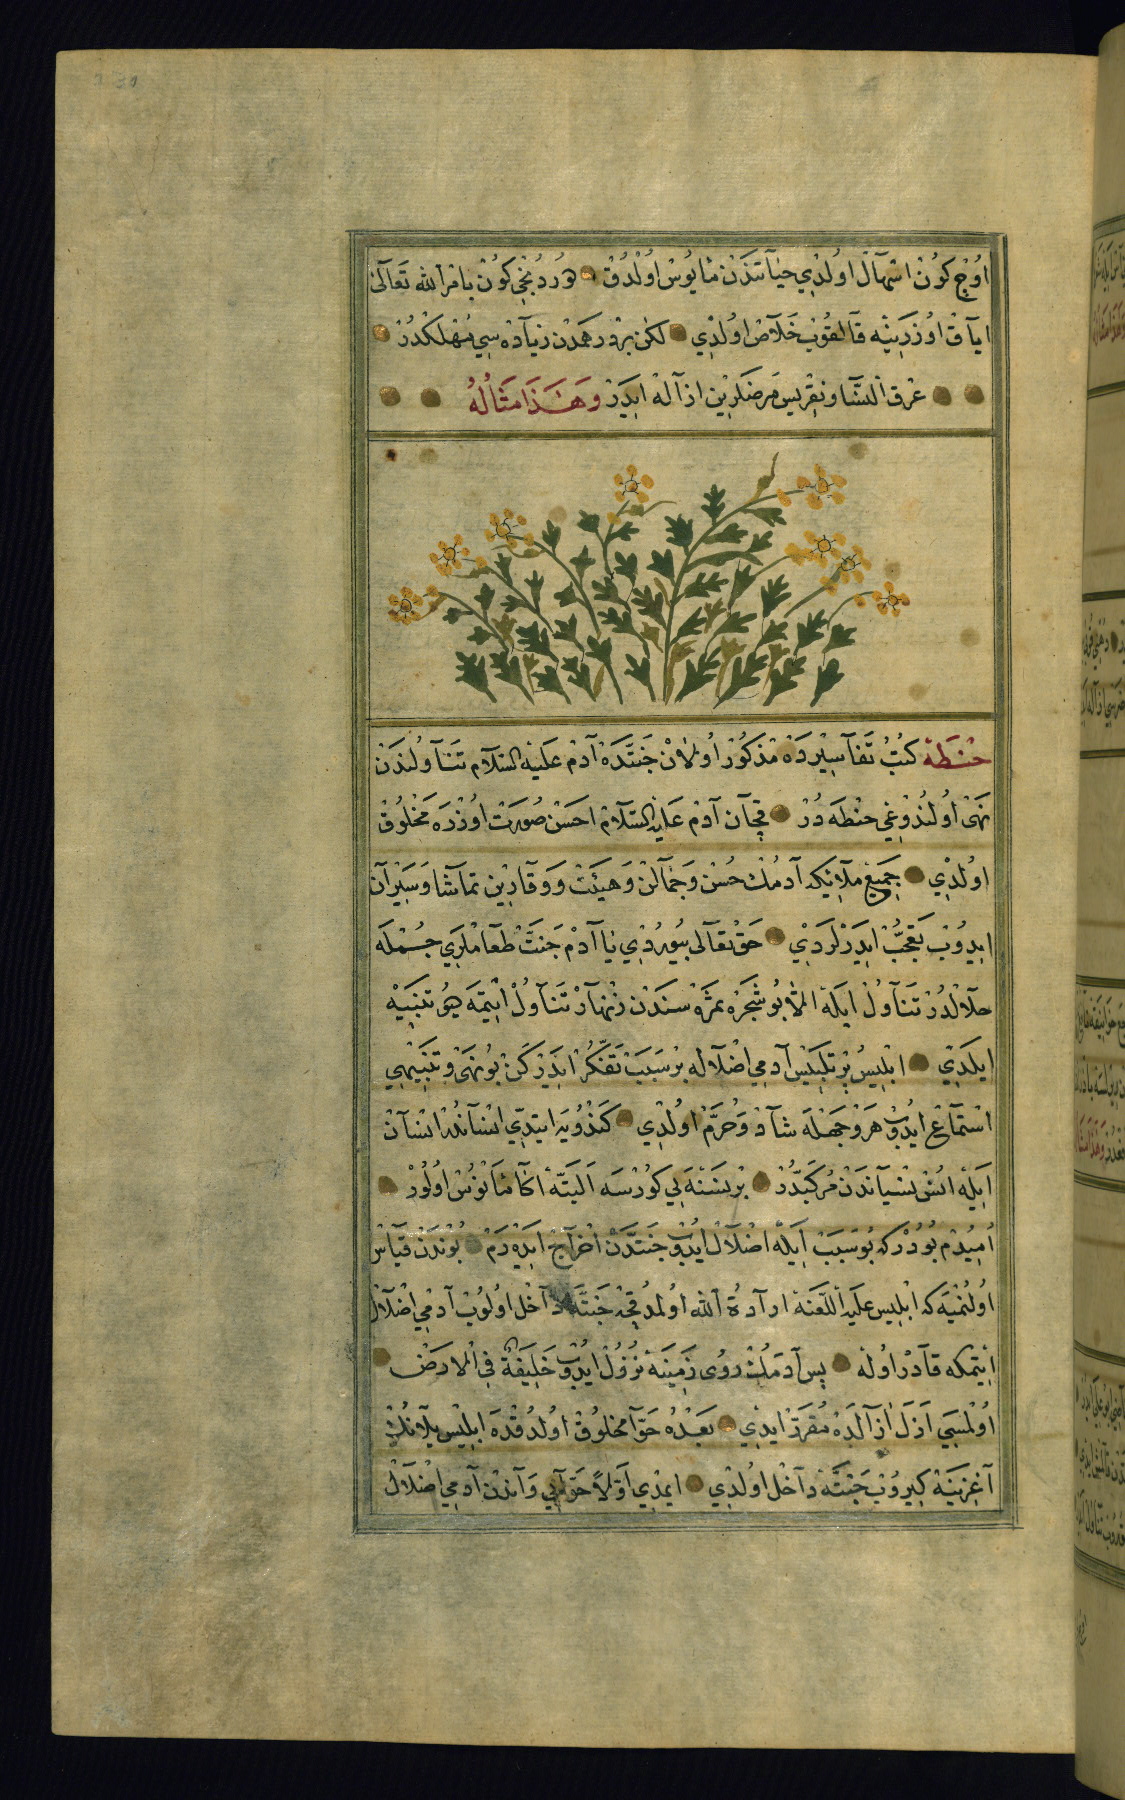 اوُچ كوُن اسْهآلْ اوُلدْيِ حيٰآتنَدنْ مأيوُسْ اوُلدُقْ هوُردُنْجِي كوُنْ بامْرالله تَعَالَى
ايآقْ اوُزرَينْه قآلقوُبْ خَلَاصْ اوُلدْيِ لكنْ برْ درهمَدنْ زيآدَه سيِ مُهْلكدُرْ
عرْق النّسَا ونقرْيسْ مَرضَلرينْ ازآلهْ ايدَرْ وَهَـٰذَا مِثَالُهُ
حنْطَهْ كتُبُ تَفآسيرْدَه مَذكوُرْ اوُلاٰنْ جَنتَّدَهْ آدمْ عَليَهْ السّلآمْ تنَآوُلندَنْ
نَهْي اوُلندُوغي حنْطَه دُرْ قچآنْ آدمْ عَليَهْ السّلآمْ احسَنْ صُورَتْ اوُزرَه مَخْلوُقْ
اوُلدْيِ جَميِعْ ملآئِكه آدمُكْ حُسْن وَجَمآلنْ وَهيئَتْ وَوَقآرينْ تمآشآ وَسَيرآنْ
ايدوُبْ تعَجّبُ ايدَرْلرَدْيِ حَقْ تعَآلى بيُورُدْيِ يَا آدمْ جَنتَّ طعآملرَيِ جُـمْلَه
حلآلْدُرْ تنَآوُلْ ايلَهْ الّا بوُ شَجَرَه ثمَرَهْ سنَدنْ زنْهآرْ تنَآوُلْ ايتْمَه ديُو تنْبيَهْ
ايلَدْيِ ابْليسْ پرْ تلْبيَسْ آدمي اضْلآله برْ سَببَ تفَكّرُ ايدَرْكنْ بوُ نَهي و تنْبيَهي
استْمآعْ ايدوُبْ هَرْ وَجْهله شآدْ وَخُرّمْ اوُلدْيِ كَندْوُيَه ايتدّيِ انسْآندُرْ انسْآنْ
ايلَه انُسْ نسْيآندَنْ مُركّبَدُرْ برْ نسَنَه يي كوُرسَه البَتّهْ اكآ مأنوُسْ اوُلوُرْ
اُميدُمْ بوُدُرْكه بوُ سَببَ ايلَه اضْلآلْ ايدوُبْ جَنتّدَنْ اخْراجْ ايدَه رَمْ بوُندَنْ قيآسْ
اوُلنُميَه كه ابْليسْ عليَه اللّعْنَهْ ارآدَهُ الله اوُلمدُقچه جَنتّه دآخْل اوُلوُبْ آدمي اضْلآلْ
ايتْمكه قآدرْ اوُله پسْ آدمَكْ رويِ زَمينَه نزُوُلْ ايدوُبْ خَليِفَةٌ فِي الْارَضْ
اوُلمْسي ازَلْ ازآلدَه مُقرّرْ ايدْيِ بعَدْهُ حَوّآ مخلوُقْ اوُلدُقدَه ابليْس ييلآنُكْ
آغزينَهْ كيروُبْ جَنتَّه دآخْل اوُلدْيِ ايمْديِ اوّلاً حَوّآيي وَآندنْ آدمي اضْلآلْ